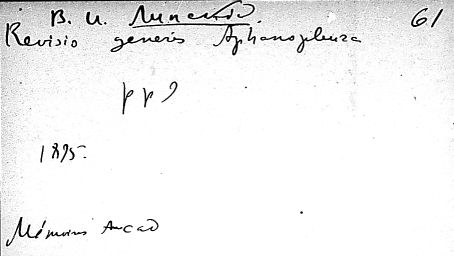 В. И. Липский. 61
Revisio generis Aphanopleura
pp 9
1895.
Mémoires Acad